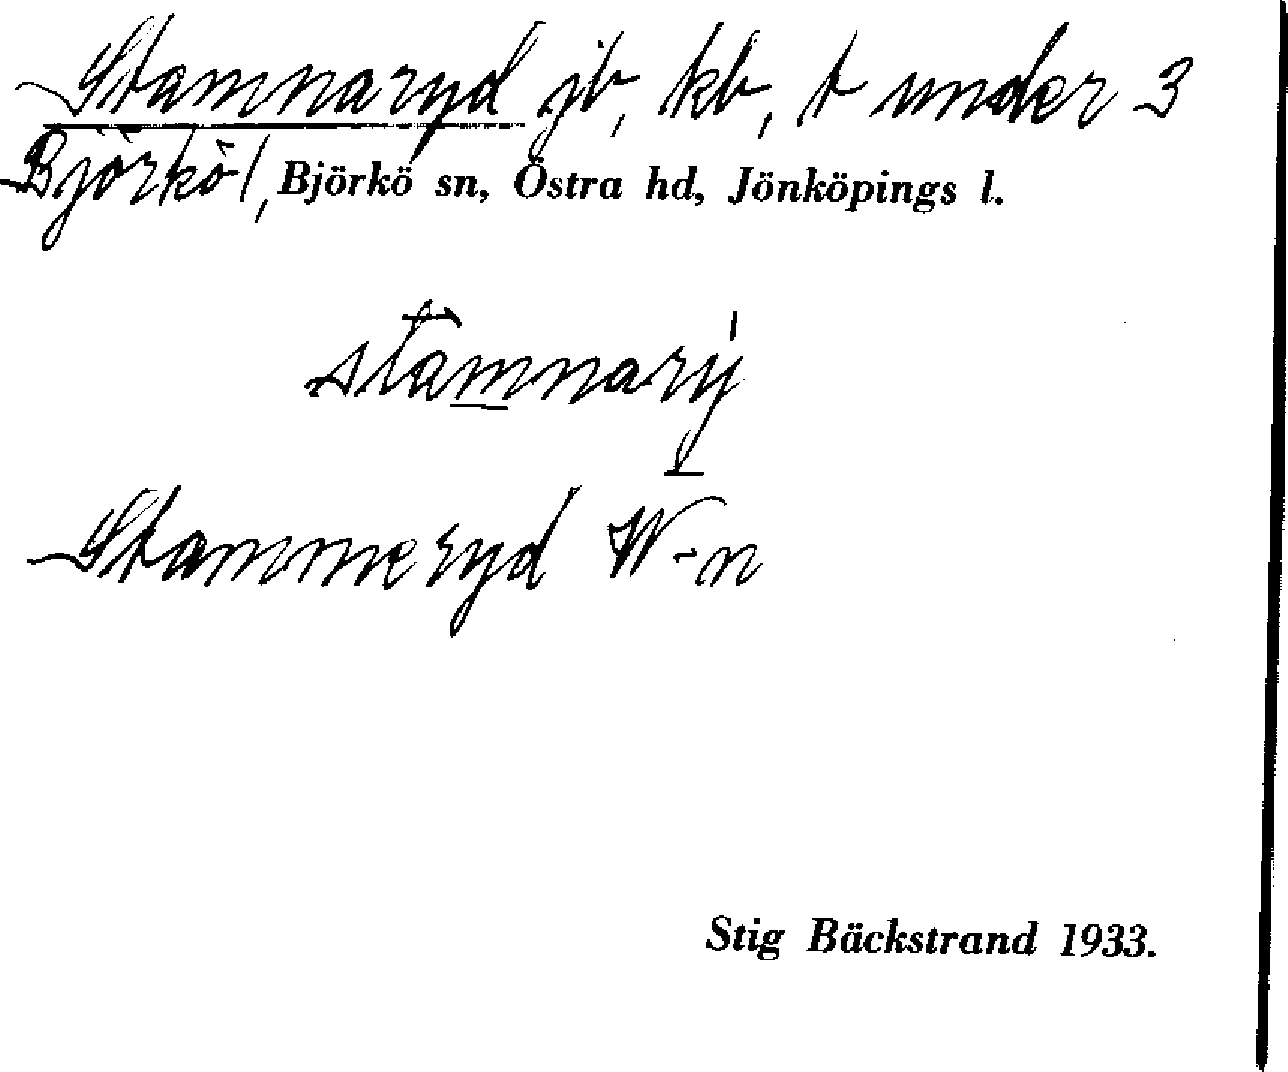 Stamnaryd jb, kb, t under 3
Björkö 1, Björkö sn, Östra hd, Jönköpings l.
stamnarý
Stammeryd W-n
Stig Bäckstrand 1933.